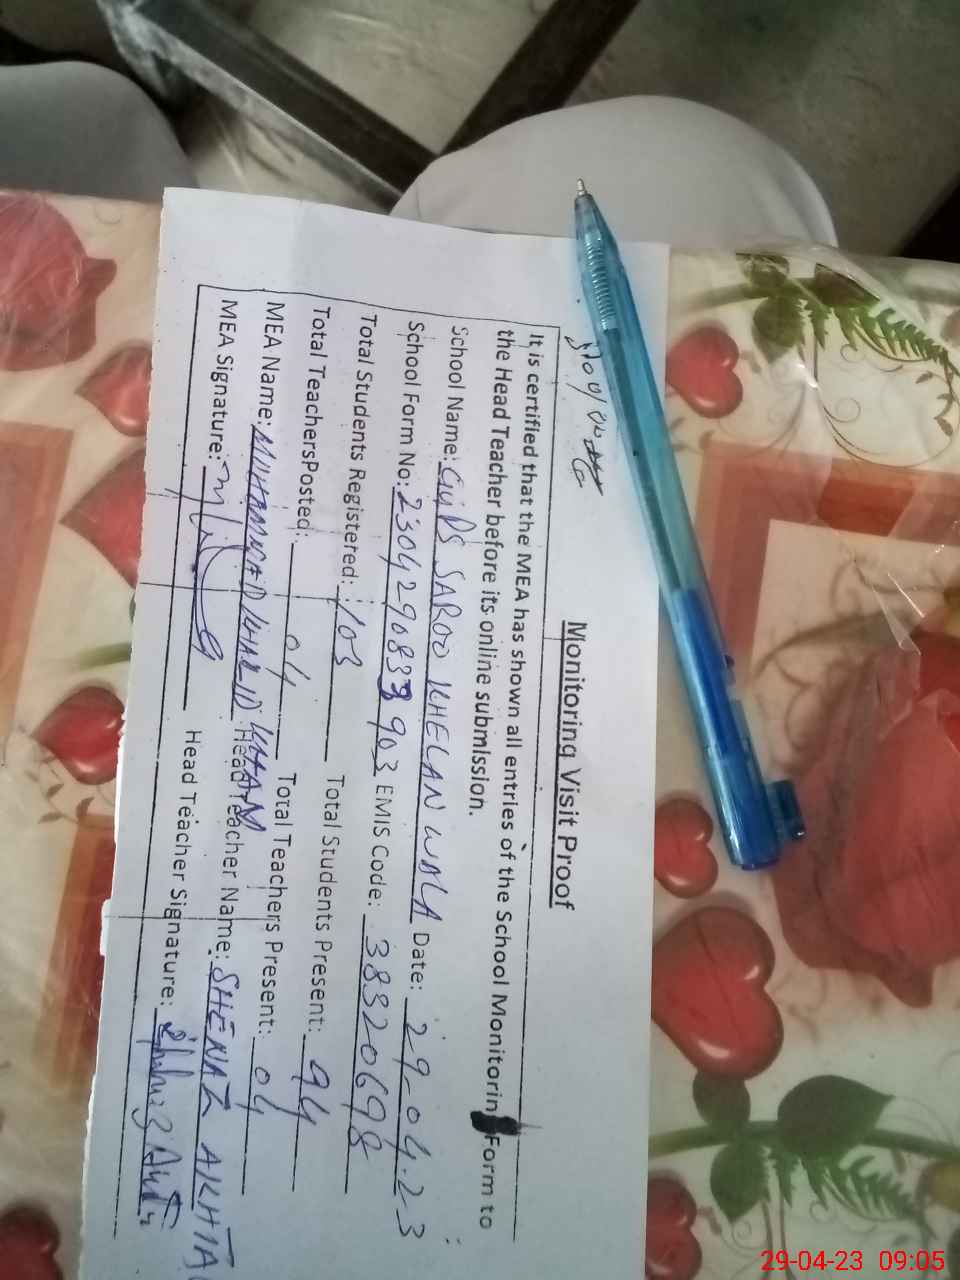 Monitoring Visit Proof
It is certified that the MEA has shown all entries of the School Monitorin Form to
the Head Teacher before its online submission.
School Name: GGPS SAROO KHELAN WALA Date: 29-04-23
School Form No: 230429083 903 EMIS Code: 38320698
Total Students Registered: 103 Total Students Present: 94
Total TeachersPosted: 04 Total Teachers Present: 04
MEA Name: MUHAMMAD KHALID KHAN Head Teacher Name: SHENAZ AKHTA
MEA Signature: Head Teacher Signature:
29-04-23 09:05